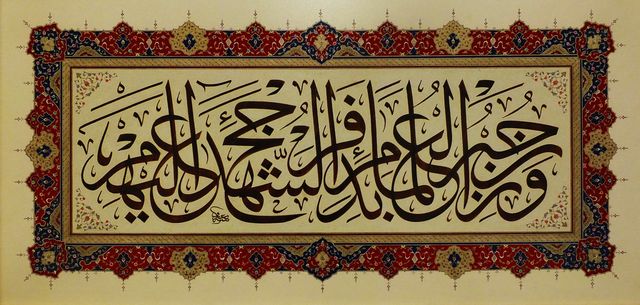 وزن حبر العلماء بدم الشهداء فرجح عليهم